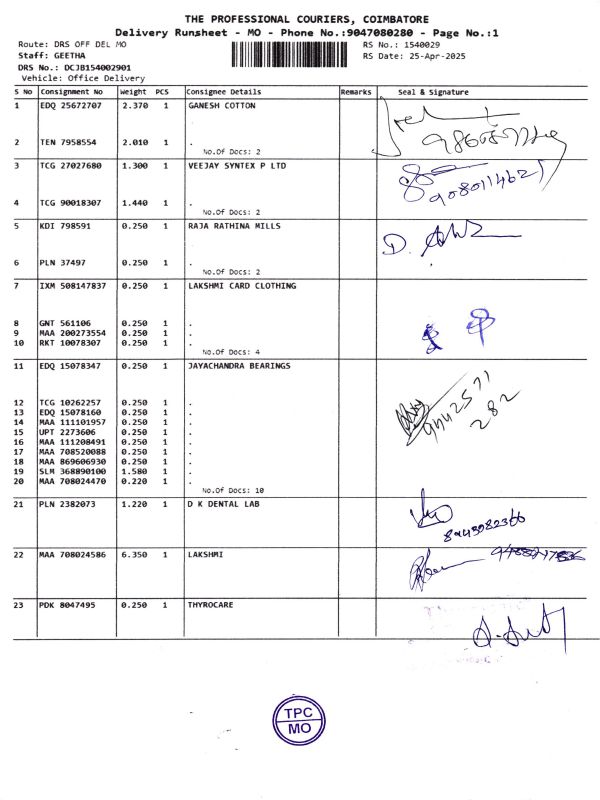 THE PROFESSIONAL COURIERS, COIMBATORE
Delivery Runsheet - MO - Phone No.:9047080280 - Page No.:1
Route: DRS OFF DEL MO
RS No.: 1540029
Staff: GEETHA
RS Date: 25-Apr-2025
DRS No.: DCJB154002901
Vehicle: Office Delivery
S No Consignment No Weight PCS Consignee Details Remarks Seal & Signature
1 EDQ 25672707 2.370 1 GANESH COTTON
2 TEN 7958554 2.010 1 .
No.Of Docs: 2
3 TCG 27027680 1.300 1 VEEJAY SYNTEX P LTD
4 TCG 90018307 1.440 1 .
No.Of Docs: 2
5 KDI 798591 0.250 1 RAJA RATHINA MILLS
6 PLN 37497 0.250 1 .
No.Of Docs: 2
7 IXM 508147837 0.250 1 LAKSHMI CARD CLOTHING
8 GNT 561106 0.250 1 .
9 MAA 200273554 0.250 1 .
10 RKT 10078307 0.250 1 .
No.Of Docs: 4
11 EDQ 15078347 0.250 1 JAYACHANDRA BEARINGS
12 TCG 10262257 0.250 1 .
13 EDQ 15078160 0.250 1 .
14 MAA 111101957 0.250 1 .
15 UPT 2273606 0.250 1 .
16 MAA 111208491 0.250 1 .
17 MAA 708520088 0.250 1 .
18 MAA 869606930 0.250 1 .
19 SLM 368890100 1.580 1 .
20 MAA 708024470 0.220 1 .
No.Of Docs: 10
21 PLN 2382073 1.220 1 D K DENTAL LAB
22 MAA 708024586 6.350 1 LAKSHMI
23 PDK 8047495 0.250 1 THYROCARE
TPC
MO